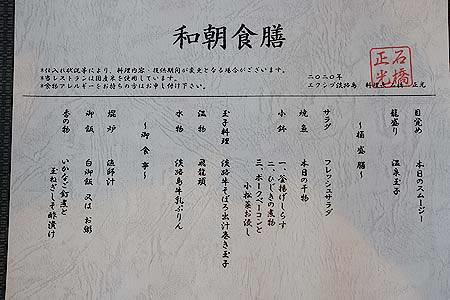 和朝食膳
※仕入れ状況等により、料理内容・提供期間が変更となる場合がございます。
※当レストランは国産米を使用しています。
※食物アレルギーをお持ちの方はお申し付け下さい。
二〇二〇年
エクシブ淡路島 料理長 石橋 正光
石橋正光
目覚め 本日のスムージー
籠盛り 温泉玉子
~桶盛膳~
サラダ フレッシュサラダ
焼魚 本日の干物
小鉢 一、釜揚げしらす
二、ひじきの煮物
三、ポークベーコンと
小松菜お浸し
玉子料理 淡路牛そぼろ出汁巻き玉子
温物 飛龍頭
水物 淡路島牛乳ぷりん
~御食事~
焜炉 漁師汁
御飯 白御飯 又は お粥
香の物 いかなご釘煮と
玉ねぎしそ酢漬け